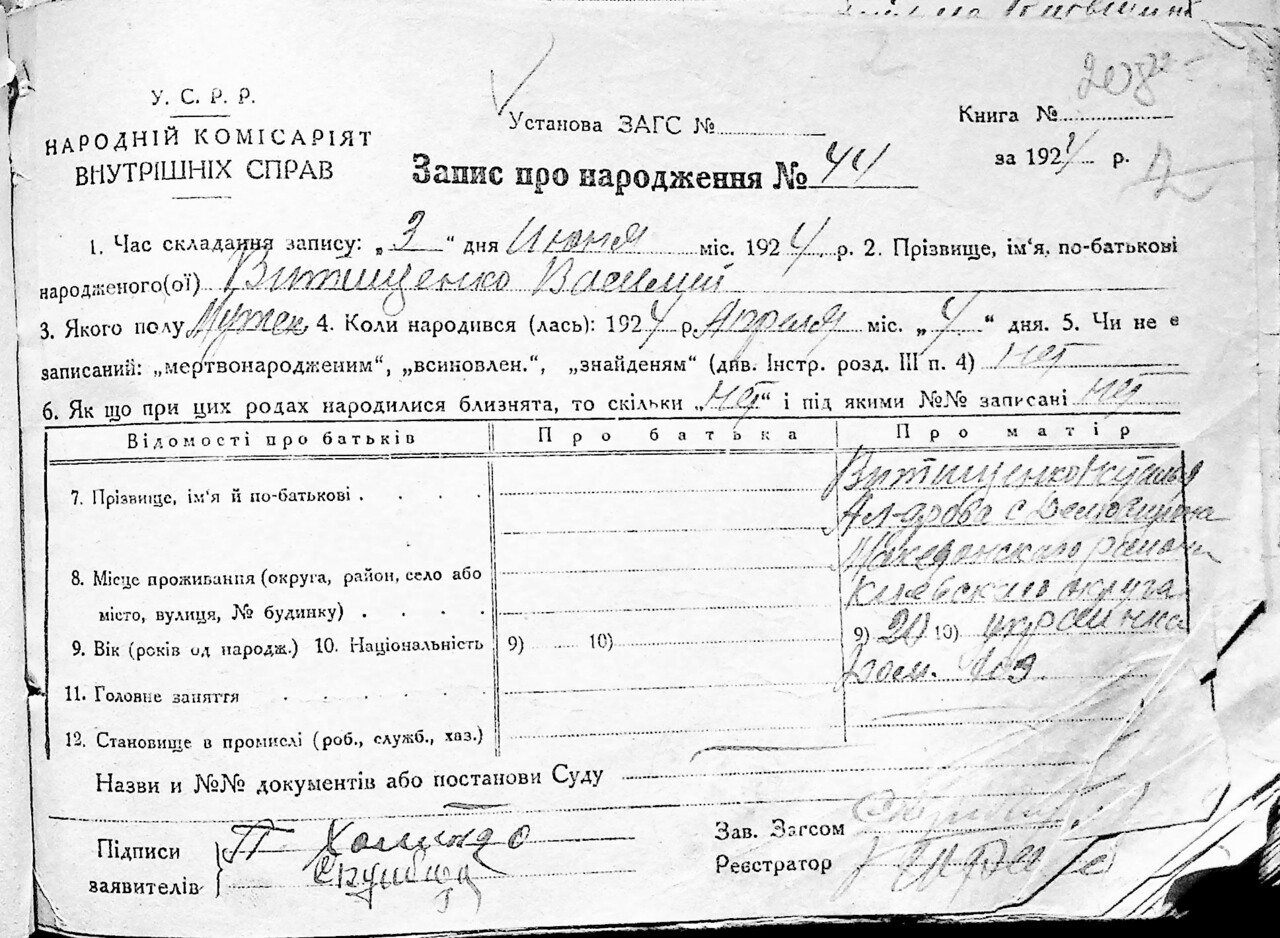 208
У. С. Р. Р.
НАРОДНІЙ КОМІСАРІЯТ
ВНУТРІШНІХ СПРАВ
Установа ЗАГС №
Книга №
за 1924 р.
Запис про народження № 44
1. Час складання запису: „3“ дня Июня міс. 1924 р. 2. Прізвище, ім‘я, по-батькові
народженого(ої) Витищенко Василий
3. Якого полу Мужск 4. Коли народився (лась): 1924 р. Апреля міс. „4“ дня. 5. Чи не є
записаний: „мертвонародженим“, „всиновлен.“, „знайденям“ (див. Інстр. розд. III п. 4) Нет
6. Як що при цих родах народилися близнята, то скільки „нет“ і під якими №№ записані нет
Відомості про батьків Про батька Про матір
7. Прізвище, ім‘я й по-батькові . . . .
Витищенко Наталья
Ал-дрова с
8. Місце проживання (округа, район, село або
місто, вулиця, № будинку) . . . .
района
Киевского округа
9. Вік (років од народж.) 10. Національність 9) 10) 9) 20 10) украинка
11. Головне заняття . . . . Дом. хоз.
12. Становище в промислі (роб., служб., хаз.)
Назви и №№ документів або постанови Суду
Підписи
заявителів
П
Зав. Загсом
Реєстратор